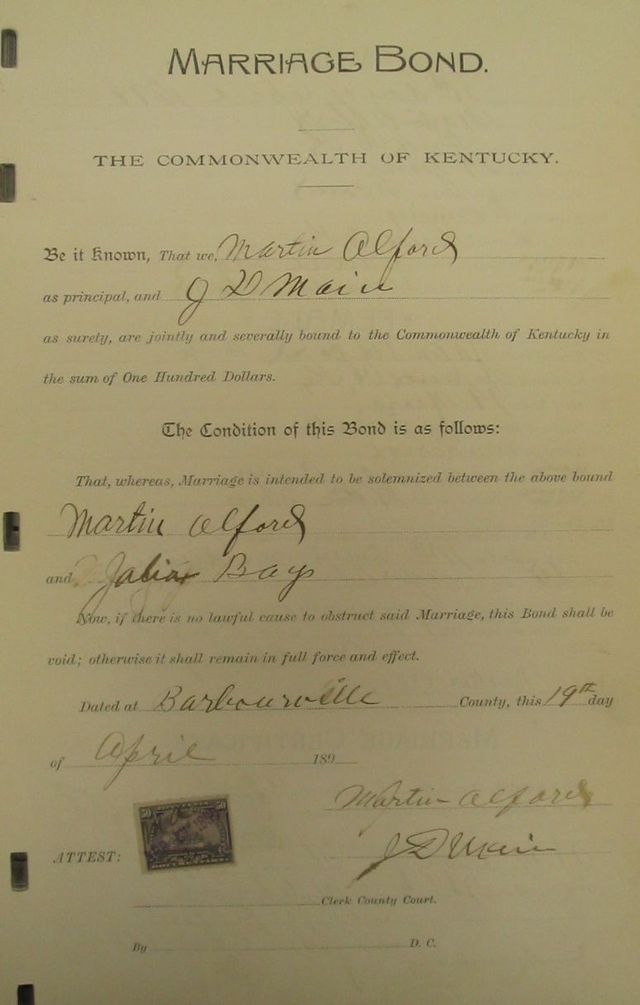 MARRIAGE BOND.
THE COMMONWEALTH OF KENTUCKY.
Be it Known, That we, Martin Alford
as principal, and J D Main
as surely, are jointly and severally bound to the Commonwealth of Kentucky in
the sum of One Hundred Dollars.
The Condition of this Bond is as follows:
That, whereas, Marriage is intended to be solemnized between the above bound
Martin Alford
and Bays
Now, if there is no lawful cause to obstruct said Marriage, this Bond shall be
void; otherwise it shall remain in full force and effect.
Dated at Barbourville County, this 19th day
of April 189
Martin Alford
50 50
ATTEST: J D Main
Clerk County Court.
By D. C.